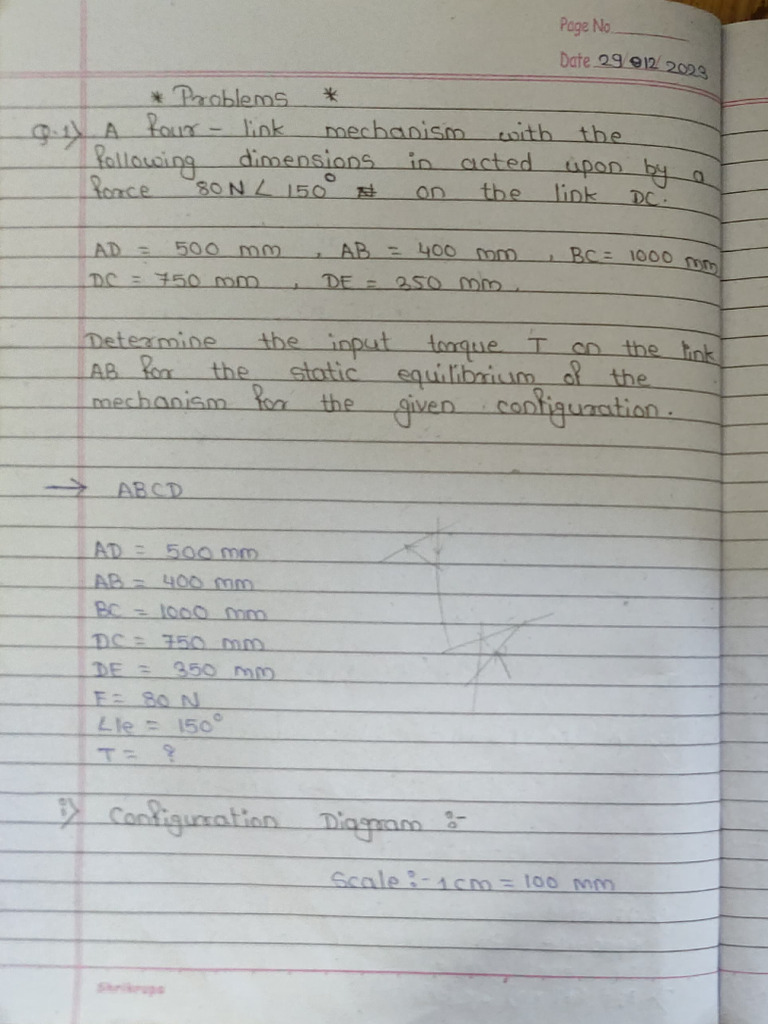 Page No.
Date 29/12/2023
* Problems *
Q.1) A four - link mechanism with the
following dimensions in acted upon by a
force 80N ∠ 150° on the link DC.
AD = 500 mm , AB = 400 mm , BC = 1000 mm
DC = 750 mm , DE = 350 mm.
Determine the input torque T on the link
AB for the static equilibrium of the
mechanism for the given configuration.
→ ABCD
AD = 500 mm
AB = 400 mm
BC = 1000 mm
DC = 750 mm
DE = 350 mm
F = 80 N
∠le = 150°
T = ?
i) Configuration Diagram :-
Scale :- 1 cm = 100 mm
Shrikrupa